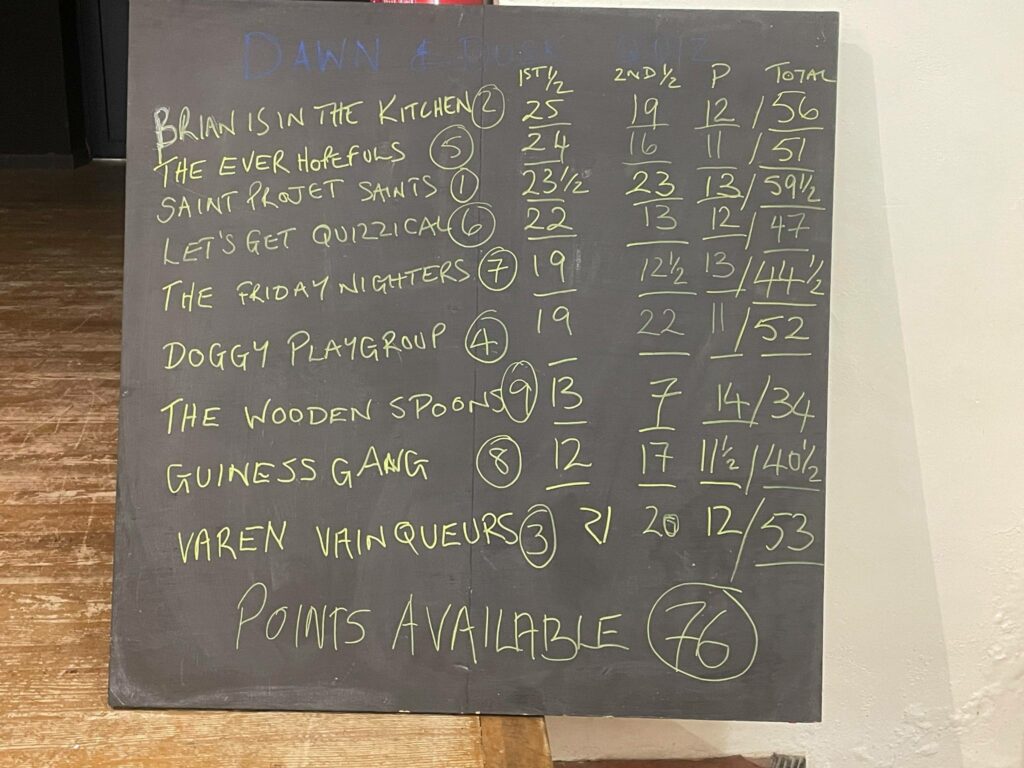 DAWN & DUSK QUIZ
1ST ½ 2ND ½ P TOTAL
BRIAN IS IN THE KITCHEN 2 25 19 12 / 56
THE EVER HOPEFULS 5 24 16 11 / 51
SAINT PROJET SAINTS 1 23½ 23 13 / 59½
LET'S GET QUIZZICAL 6 22 13 12 / 47
THE FRIDAY NIGHTERS 7 19 12½ 13 / 44½
DOGGY PLAYGROUP 4 19 22 11 / 52
THE WOODEN SPOONS 9 13 7 14 / 34
GUINESS GANG 8 12 17 11½ / 40½
VAREN VAINQUEURS 3 21 20 12 / 53
POINTS AVAILABLE 76